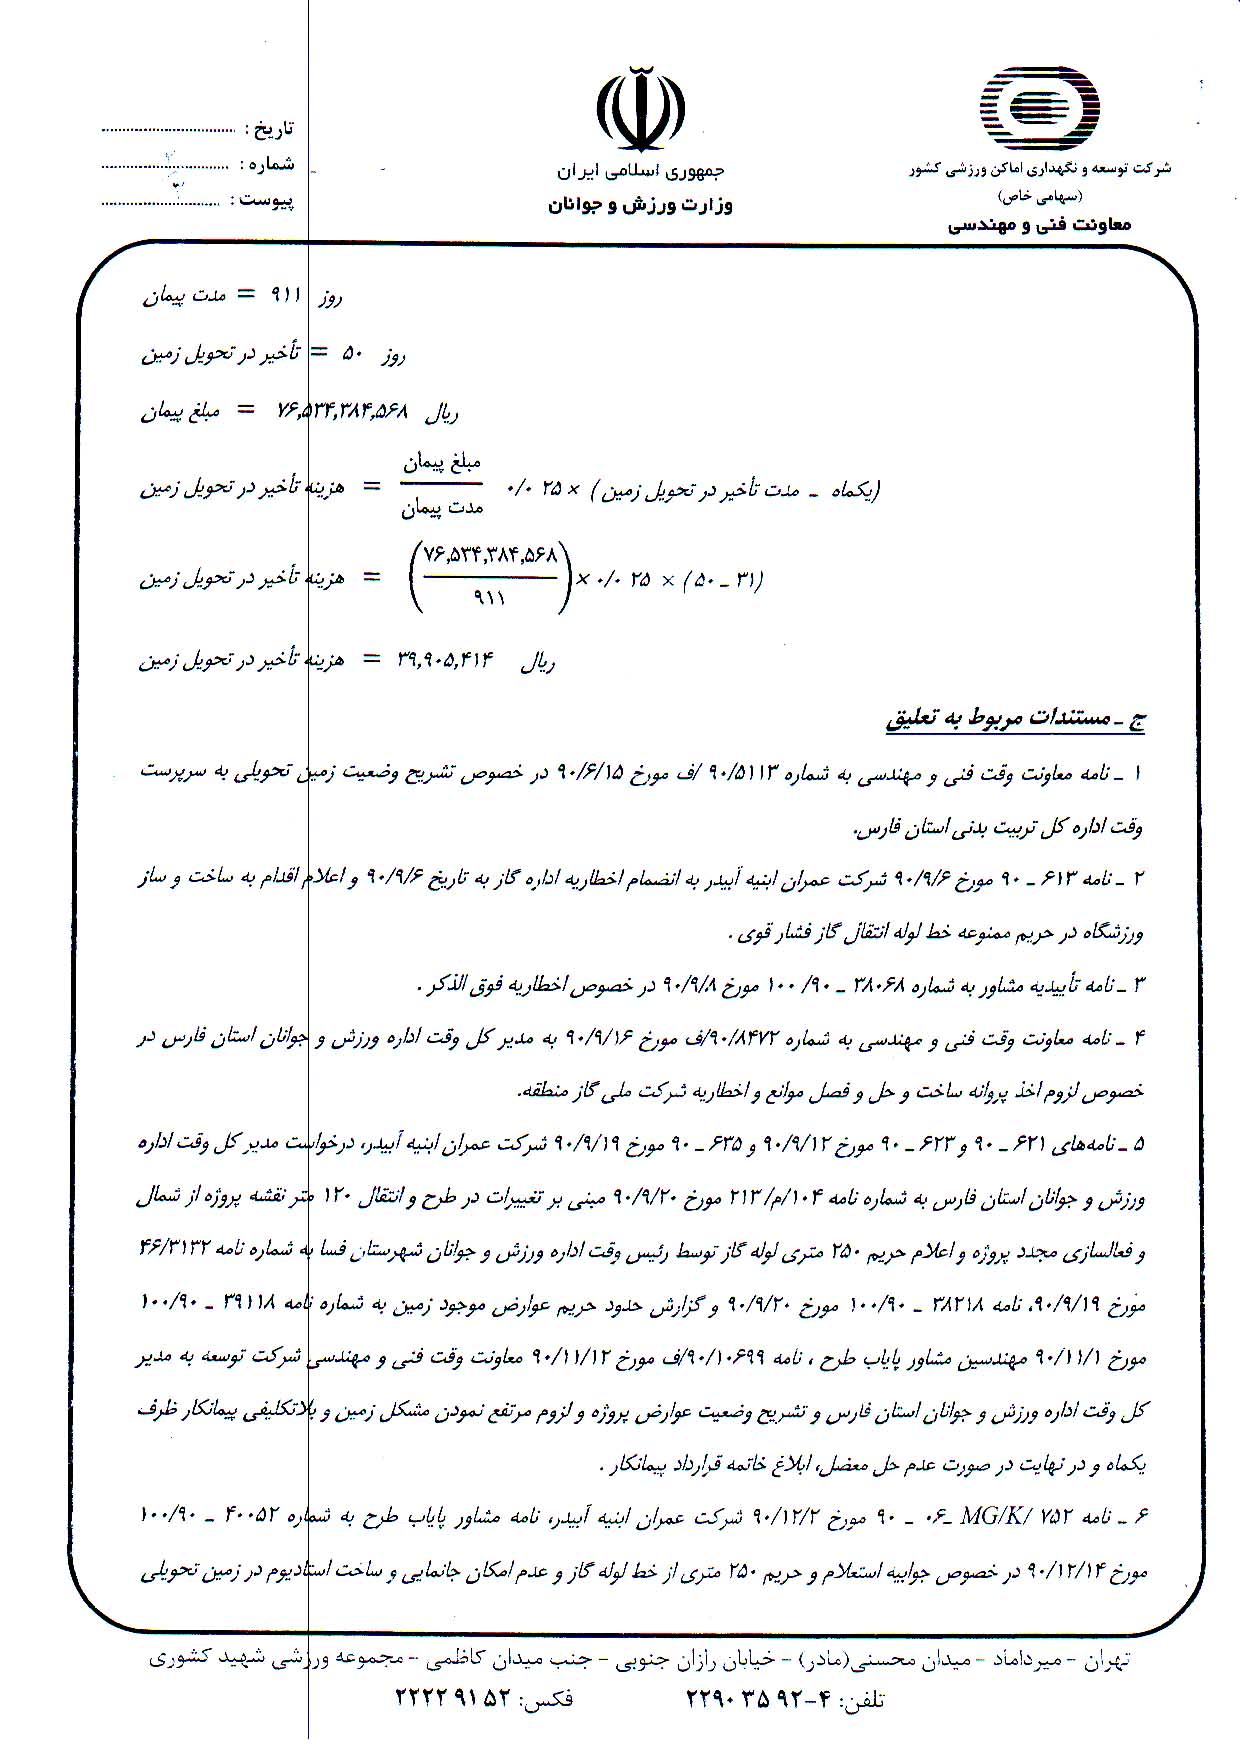 شرکت توسعه و نگهداری اماکن ورزشی کشور
(سهامی خاص)
معاونت فنی و مهندسی
جمهوری اسلامی ایران
وزارت ورزش و جوانان
تاریخ :
شماره :
پیوست :
مدت پیمان = ۹۱۱ روز
تأخیر در تحویل زمین = ۵۰ روز
مبلغ پیمان = ۷۶,۵۳۴,۳۸۴,۵۶۸ ریال
هزینه تأخیر در تحویل زمین = مبلغ پیمان / مدت پیمان ۰/۰۲۵ × (مدت تأخیر در تحویل زمین ـ یکماه)
هزینه تأخیر در تحویل زمین = (۷۶,۵۳۴,۳۸۴,۵۶۸ / ۹۱۱) × ۰/۰۲۵ × (۵۰ ـ ۳۱)
هزینه تأخیر در تحویل زمین = ۳۹,۹۰۵,۴۱۴ ریال
ج ـ مستندات مربوط به تعلیق
۱ ـ نامه معاونت وقت فنی و مهندسی به شماره ۹۰/۵۱۱۳/ف مورخ ۹۰/۶/۱۵ در خصوص تشریح وضعیت زمین تحویلی به سرپرست
وقت اداره کل تربیت بدنی استان فارس.
۲ ـ نامه ۶۱۳ ـ ۹۰ مورخ ۹۰/۹/۶ شرکت عمران ابنیه آبیدر به انضمام اخطاریه اداره گاز به تاریخ ۹۰/۹/۶ و اعلام اقدام به ساخت و ساز
ورزشگاه در حریم ممنوعه خط لوله انتقال گاز فشار قوی .
۳ ـ نامه تأییدیه مشاور به شماره ۳۸۰۶۸ ـ ۱۰۰/۹۰ مورخ ۹۰/۹/۸ در خصوص اخطاریه فوق الذکر .
۴ ـ نامه معاونت وقت فنی و مهندسی به شماره ۹۰/۸۴۷۲/ف مورخ ۹۰/۹/۱۶ به مدیر کل وقت اداره ورزش و جوانان استان فارس در
خصوص لزوم اخذ پروانه ساخت و حل و فصل موانع و اخطاریه شرکت ملی گاز منطقه.
۵ ـ نامه‌های ۶۲۱ ـ ۹۰ و ۶۲۳ ـ ۹۰ مورخ ۹۰/۹/۱۲ و ۶۳۵ ـ ۹۰ مورخ ۹۰/۹/۱۹ شرکت عمران ابنیه آبیدر، درخواست مدیر کل وقت اداره
ورزش و جوانان استان فارس به شماره نامه ۱۰۴/م/۲۱۳ مورخ ۹۰/۹/۲۰ مبنی بر تغییرات در طرح و انتقال ۱۲۰ متر نقشه پروژه از شمال
و فعالسازی مجدد پروژه و اعلام حریم ۲۵۰ متری لوله گاز توسط رئیس وقت اداره ورزش و جوانان شهرستان فسا به شماره نامه ۴۶/۳۱۳۲
مورخ ۹۰/۹/۱۹، نامه ۳۸۲۱۸ ـ ۱۰۰/۹۰ مورخ ۹۰/۹/۲۰ و گزارش حدود حریم عوارض موجود زمین به شماره نامه ۳۹۱۱۸ ـ ۱۰۰/۹۰
مورخ ۹۰/۱۱/۱ مهندسین مشاور پایاب طرح ، نامه ۹۰/۱۰۶۹۹/ف مورخ ۹۰/۱۱/۱۲ معاونت وقت فنی و مهندسی شرکت توسعه به مدیر
کل وقت اداره ورزش و جوانان استان فارس و تشریح وضعیت عوارض پروژه و لزوم مرتفع نمودن مشکل زمین و بلاتکلیفی پیمانکار ظرف
یکماه و در نهایت در صورت عدم حل معضل، ابلاغ خاتمه قرارداد پیمانکار .
۶ ـ نامه MG/K/ ۷۵۲ ـ۰۶ ـ ۹۰ مورخ ۹۰/۱۲/۲ شرکت عمران ابنیه آبیدر، نامه مشاور پایاب طرح به شماره ۴۰۰۵۲ ـ ۱۰۰/۹۰
مورخ ۹۰/۱۲/۱۴ در خصوص جوابیه استعلام و حریم ۲۵۰ متری از خط لوله گاز و عدم امکان جانمایی و ساخت استادیوم در زمین تحویلی
تهران - میرداماد - میدان محسنی(مادر) - خیابان رازان جنوبی - جنب میدان کاظمی - مجموعه ورزشی شهید کشوری
تلفن: ۴-۲۲۹۰۳۵۹۲ فکس: ۲۲۲۲۹۱۵۲